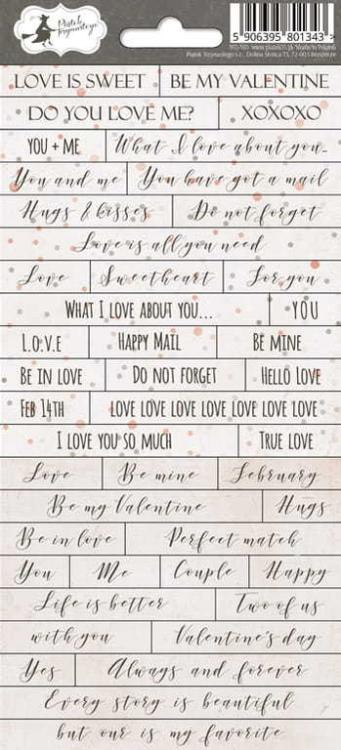 Piątek Trzynastego
5 906395 801343 >
LOVE IS SWEET BE MY VALENTINE
DO YOU LOVE ME? XOXOXO
YOU + ME What I love about you...
You and me You have got a mail
Hugs & kisses Do not forget
Love is all you need
Love Sweetheart For you
WHAT I LOVE ABOUT YOU... YOU
L.O.V.E HAPPY MAIL BE MINE
BE IN LOVE DO NOT FORGET HELLO LOVE
FEB 14TH LOVE LOVE LOVE LOVE LOVE LOVE LOVE
I LOVE YOU SO MUCH TRUE LOVE
Love Be mine February
Be my Valentine Hugs
Be in love Perfect match
You Me Couple Happy
Life is better Two of us
with you Valentine's day
Yes Always and forever
Every story is beautiful
but our is my favorite